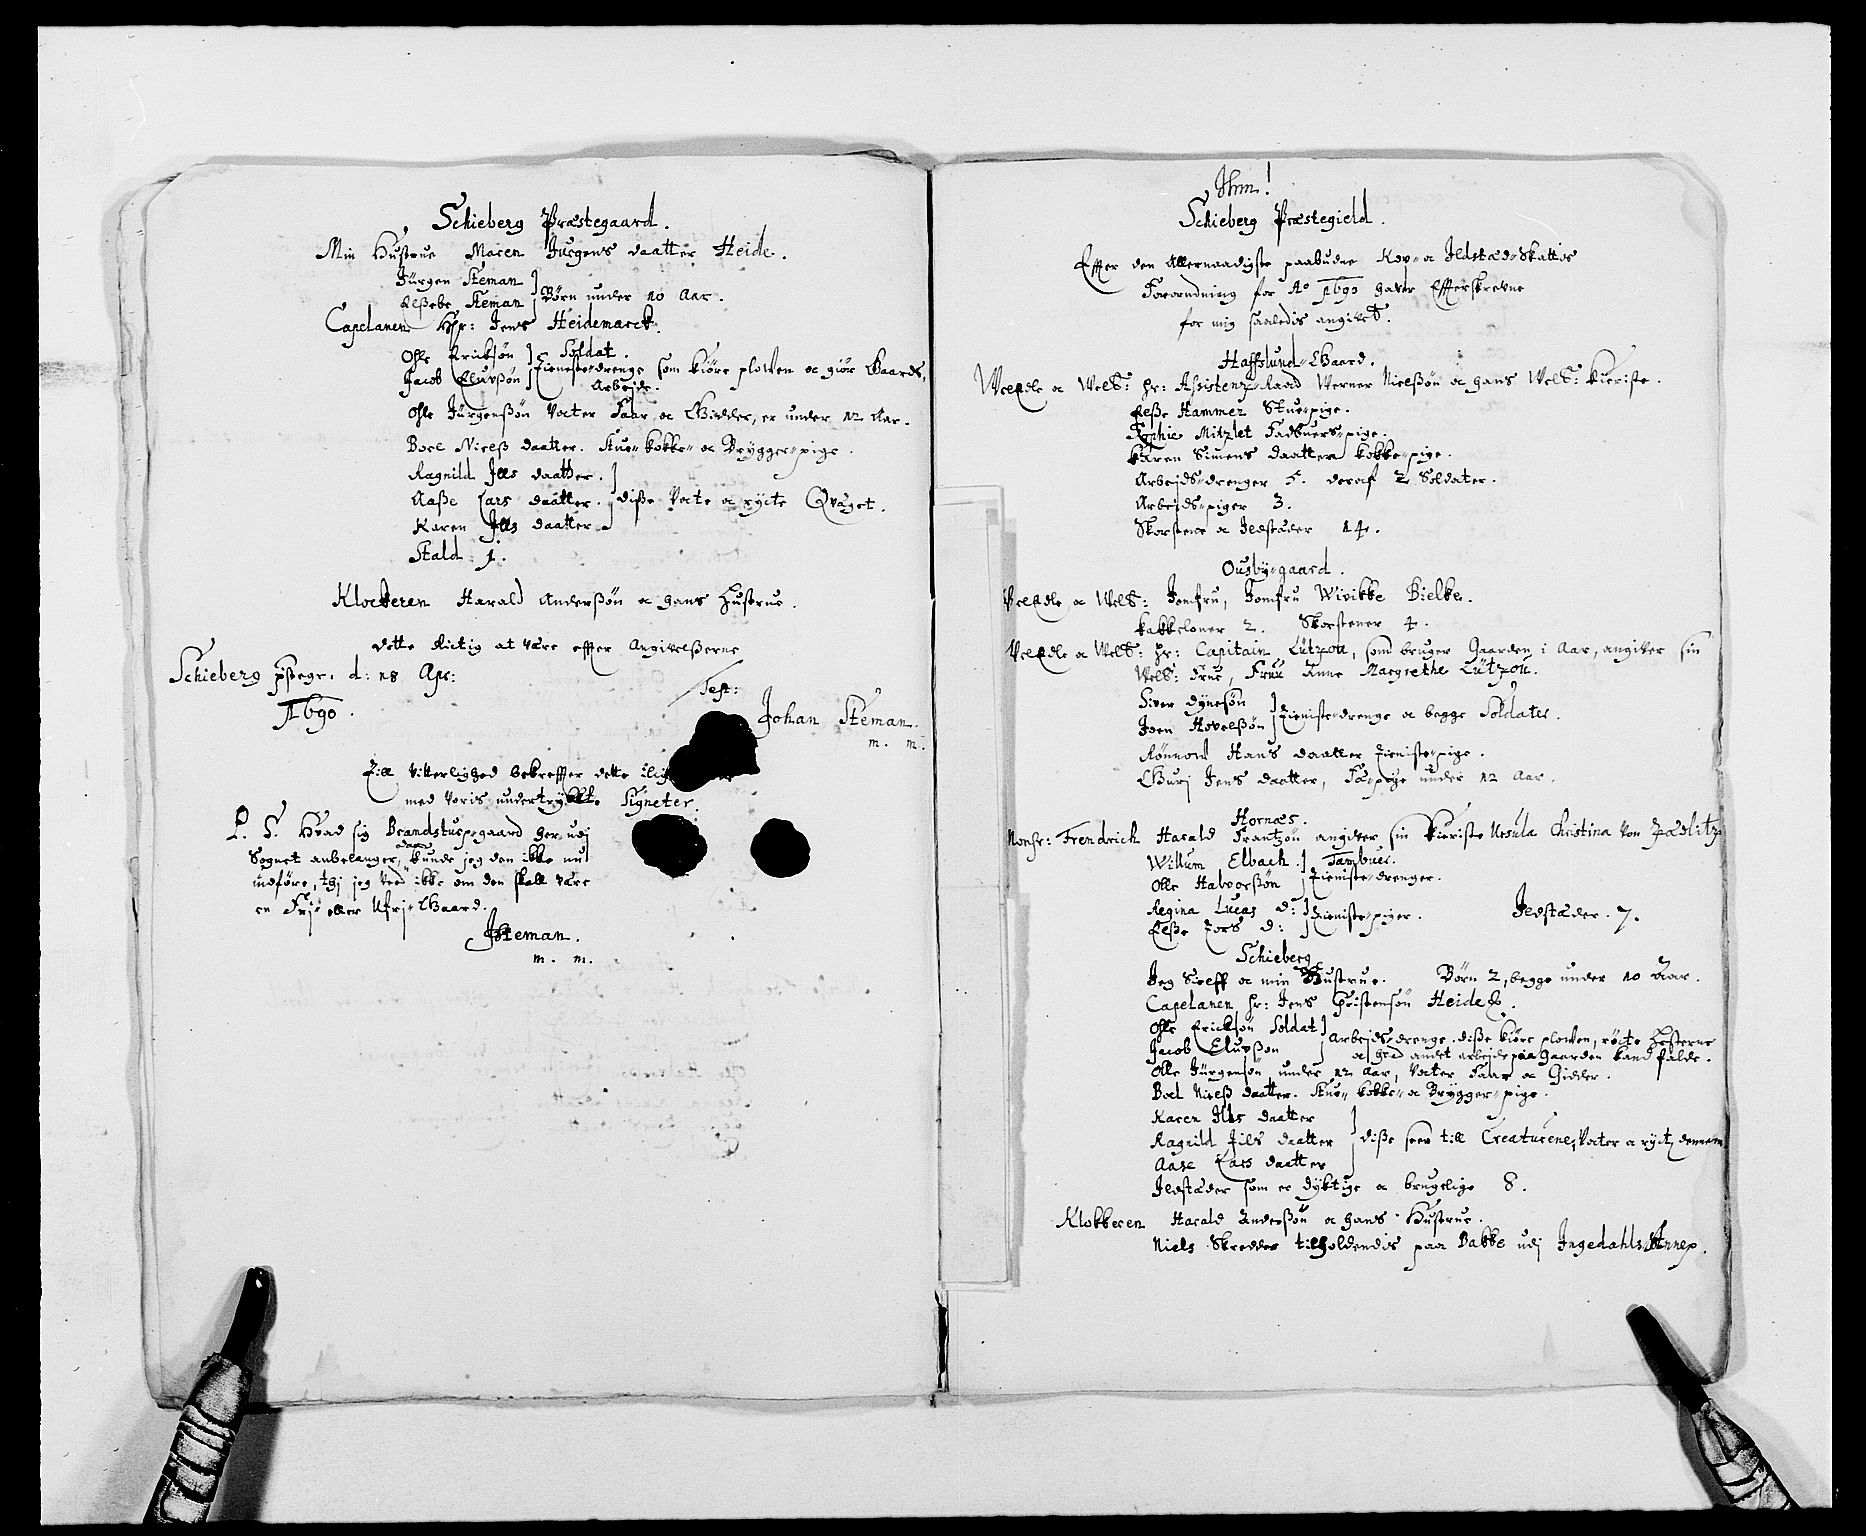 Schieberg Præstegaard.
Min Hustrue Maren Jürgens daatter Heide.
Jürgen Steman
Elßebe Steman } Børn under 10 Aar.
Capelanen Hr: Jens Heidemarck.
Ohle Erichsøn } Soldat.
Jacob Elufßøn } Tieniste-drenge som kiøre plowen oc giør Gaards,
Arbejde.
Ohle Jürgenßøn Vocter Faar oc Gieder, er under 12 Aar.
Boel Nielß daatter. Stue-kokke- oc Brygger-pige.
Ragnild Jlls daatter.
Aaße Lars daatter. } diße Vocte oc rycte Qvæget.
Karen Jlls daatter
Stald 1.
Klockeren Harald Anderßøn oc hans Hustrue.
dette Rictig at være effter Angivelßerne
Schieberg pstegr. d: 28 Apr:
1690.
Test:
Johan Steman.
m. m.
Till Vitterlighed bekreffter dette
med Voris undertrykte Signeter.
P. S. Hvad sig Brandstup-gaard her udj
Sognet anbelanger, daa kunde jeg den ikke nu
indføre, thj jeg veed ikke om den skall være
en Frj- eller Ufrj-Gaard.
JSteman.
m. m.
Schieberg Præstegield.
Effter den Allernaadigste paabudne Kop- oc Jldsted-Skattis
Forordning for Ao 1690 haver Effterskrevne
for mig saaledis angivet.
Haffslund-Gaard.
VelEdle oc Velb: Hr: Assistenz-Raad Werner Nielßøn oc hans Velb: Kieriste.
Elße Hammer Stue-pige.
Sophie Mitzlet Fadbuers-pige.
Karen Simens daatter kokke-pige.
Arbejds-drenger 5. deraf 2 Soldater.
Arbejds-piger 3.
Skorstene oc Jldstæder 14.
Ousby-gaard.
VelEdle oc Velb: Jomfru, Jomfru Wivikke Bielke.
Kakkeloner 2. Skorstener 4.
VelEdle oc Velb: Hr: Capitain Lützou, som bruger Gaarden i Aar, angiver sin
Velb: Frue, Frue Anne Margrethe Lützou.
Siver Dynesøn
Joen Hovelßøn } Tieniste-drenge oc begge Soldater.
Rønnow Hans daatter Tieniste-pige.
Gurj Jens daatter, Fæ-pige under 12 Aar.
Hornæs.
Monsr: Frendrich Harald Frantzøn angiver sin Kieriste Ursula Christina Von Zædlitz
Willum Elbach. } Tambuer.
Olle Halvorßøn } Tieniste-drenger.
Regina Lucas d:
Elße Tors d: } Tieniste-piger. Jldstæder. 7.
Schieberg
Jeg Sielff oc min Hustrue. Børn 2, begge under 10 Aar.
Capelanen Hr: Jens Christensøn Heide
Ohle Erichsøn Soldat
Jacob Elupßøn } Arbejds-drenge. diße kiøre plowen, røcte Hesterne
oc hvad andet arbejde paa Gaarden kand falde.
Olle Jürgensøn under 12 Aar, Vocter Faar oc Gieder.
Boel Nielß daatter. Stue- kokke- oc Brygger-pige.
Karen Jlls daatter
Ragnild Jils daatter } diße seer till Creaturene, Vocter oc ryct
Aase Lars daatter
Jldstæder som er dyktige oc brugelige 8.
Klokkeren Harald Anderßøn oc hans Hustrue.
Niels Skredder tilholdendis paa Bakke udj Ingedahls Annex.